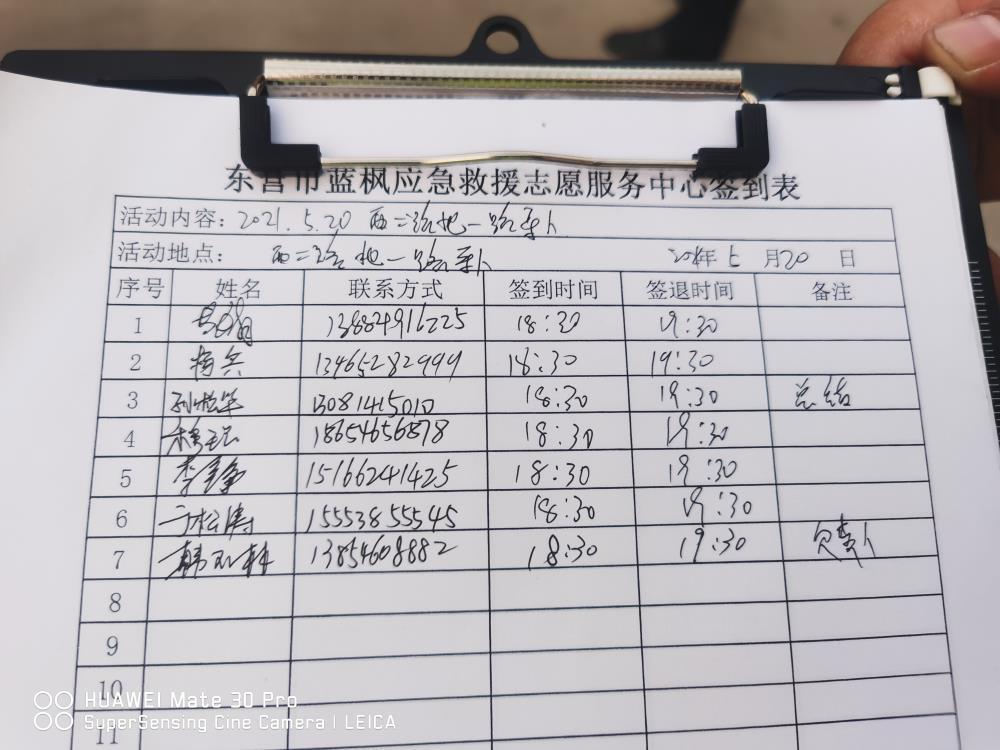 东营市蓝枫应急救援志愿服务中心签到表
活动内容: 2021.5.20 西二路北一路
活动地点: 西二路北一路 2021年 5 月20 日
序号 姓名 联系方式 签到时间 签退时间 备注
1 13884916225 18:30 19:30
2 杨兵 13465282999 18:30 19:30
3 13081415010 18:30 19:30 总结
4 18654656878 18:30 19:30
5 李 15166241425 18:30 19:30
6 于松涛 15553855545 18:30 19:30
7 韩 13854608882 18:30 19:30
8
9
10
11
HUAWEI Mate 30 Pro
SuperSensing Cine Camera | LEICA